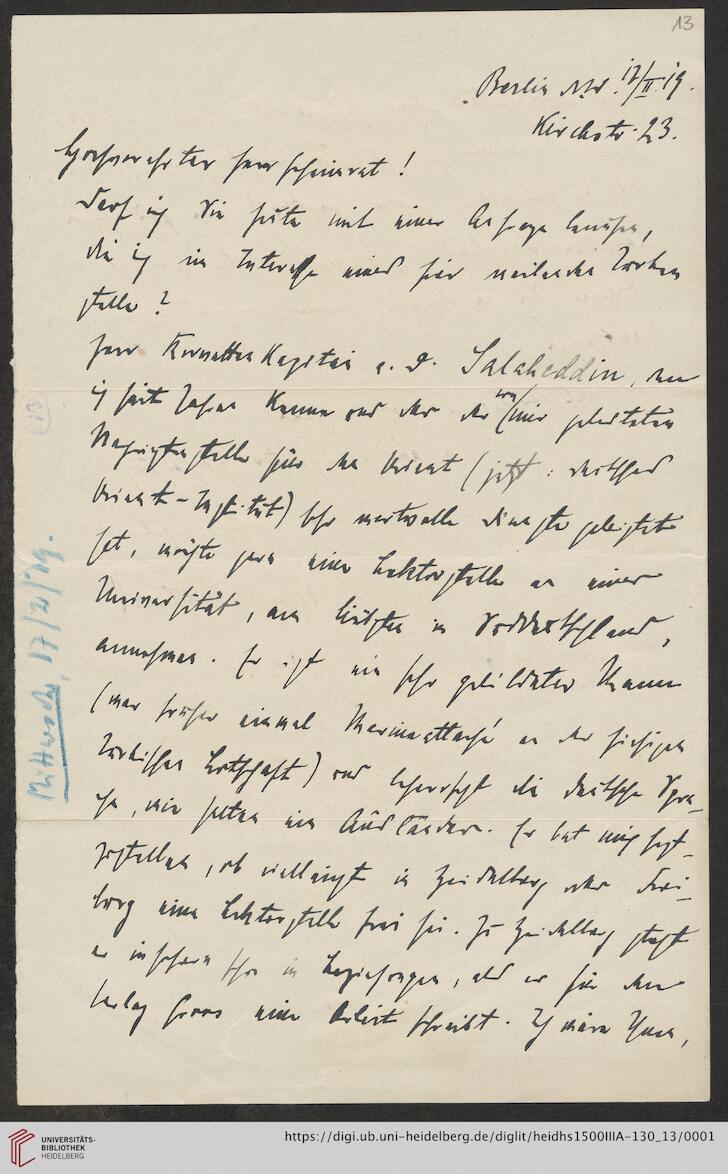 13
Berlin NW. 17/II 19.
Kirchstr. 23.
Hochverehrter Herr Geheimrat!
Darf ich Sie heute mit einer Anfrage belästigen,
die ich im Interesse eines hier weilenden Türken
stelle?
Herr Korvetten Kapitän a. D. Salaheddin, den
ich seit Jahren kenne und der der von mir geleiteten
Nachrichtenstelle für den Orient (jetzt: Deutsches
Orient-Institut) sehr wertvolle Dienste geleistet
hat, möchte gern eine Lektorstelle an einer
Universität, am liebsten in Süddeutschland,
annehmen. Er ist ein sehr gebildeter Mann
(war früher einmal Marineattaché an der hiesigen
Türkischen Botschaft) und beherrscht die deutsche Spra-
che, wie selten ein Ausländer. Er bat mich fest-
zustellen, ob vielleicht in Heidelberg oder Frei-
burg eine Lektorstelle frei sei. Zu Heidelberg steht
er insofern schon in Beziehungen, als er für den
Verlag Groos eine Arbeit schreibt. Ich wäre Ihnen,
(13)
Mittwoch, 17/2/19.
UNIVERSITÄTS-
BIBLIOTHEK
HEIDELBERG
https://digi.ub.uni-heidelberg.de/diglit/heidhs1500IIIA-130_13/0001